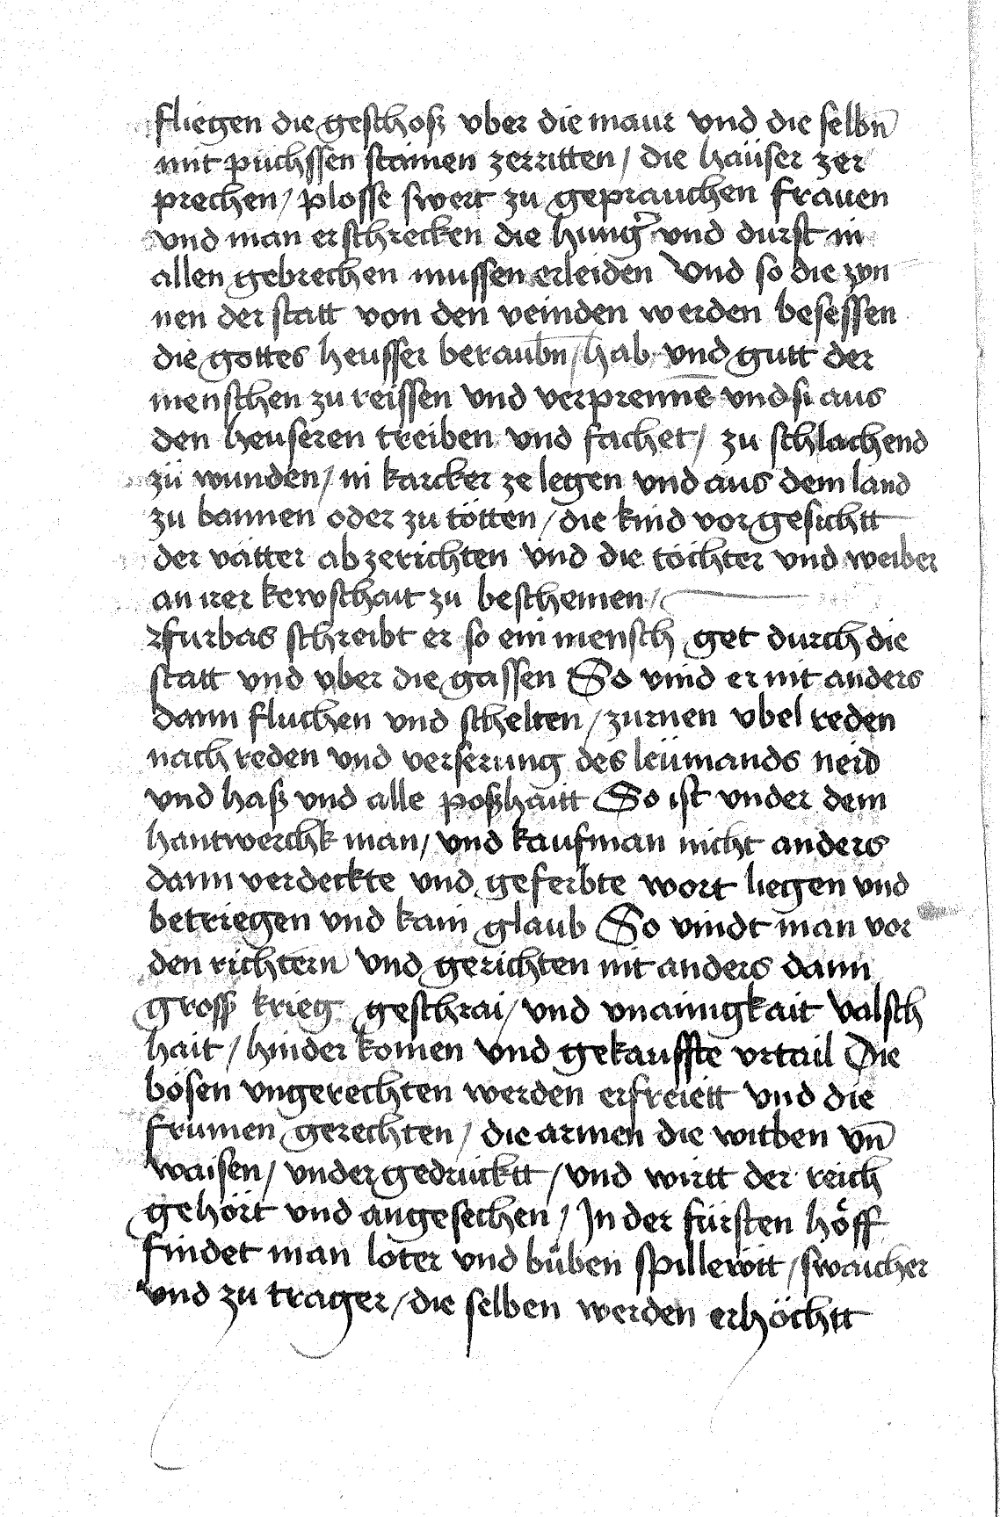 fliegen die geschoß vber die maur vnd die selbñ
mit püchssen stainen zerritten / die haüser zer
prechen / plosse swert zu geprauchen frauen
vnd man erschrecken die hung̃ vnd durst in
allen gebrechen mussen erleiden Vnd so die zyn
nen der statt von den veinden werden besessen
die gottes heusser beraubñ / hab vnd gutt der
menschen zu reissen vnd verprennẽ vnd si aus
den heuseren treiben vnd fachet / zu schlachend
zü wunden / in karcker ze legen vnd aus dem land
zu bannen oder zu tötten / die kind vor gesichtt
der vätter ab zerichten vnd die töchter vnd weiber
an irer kewschait zu beschemen /
furbas schreibt er so ein mensch get durch die
statt vnd vber die gassen So vind er nit anders
dann fluchen vnd schelten / zurnen vbel reden
nach reden vnd verserung des leümands neid
vnd haß vnd alle poßhaitt So ist vnder dem
hantwerchk man / vnd kaufman nicht anders
dann verdeckte vnd geferbte wort liegen vnd
betriegen vnd kain glaub So vindt man vor
den richtern vnd gerichten nit anders dann
gross krieg geschrai / vnd vnainigkait valsch
hait / hinder komen vnd gekauffte vrtail Die
bösen vngerechten werden erfreiett vnd die
frumen gerechten / die armen die witben vñ
waisen / vnder gedrücktt / vnd wirtt der reich
gehört vnd angesechen / In der fürsten höff
findet man loter vnd büben spillewtt / swaicher
vnd zu trager / die selben werden erhöchtt